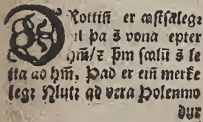 DRottiñ er œstsælegz
ul þa ꝫ vona epter
hm̃/ꝛ þm̃ sœlũ ꝫ le
tta ad hm̃, Þad er eiñ merke
legꝛ Nlutꝛ ad vera Þolenmo
dur